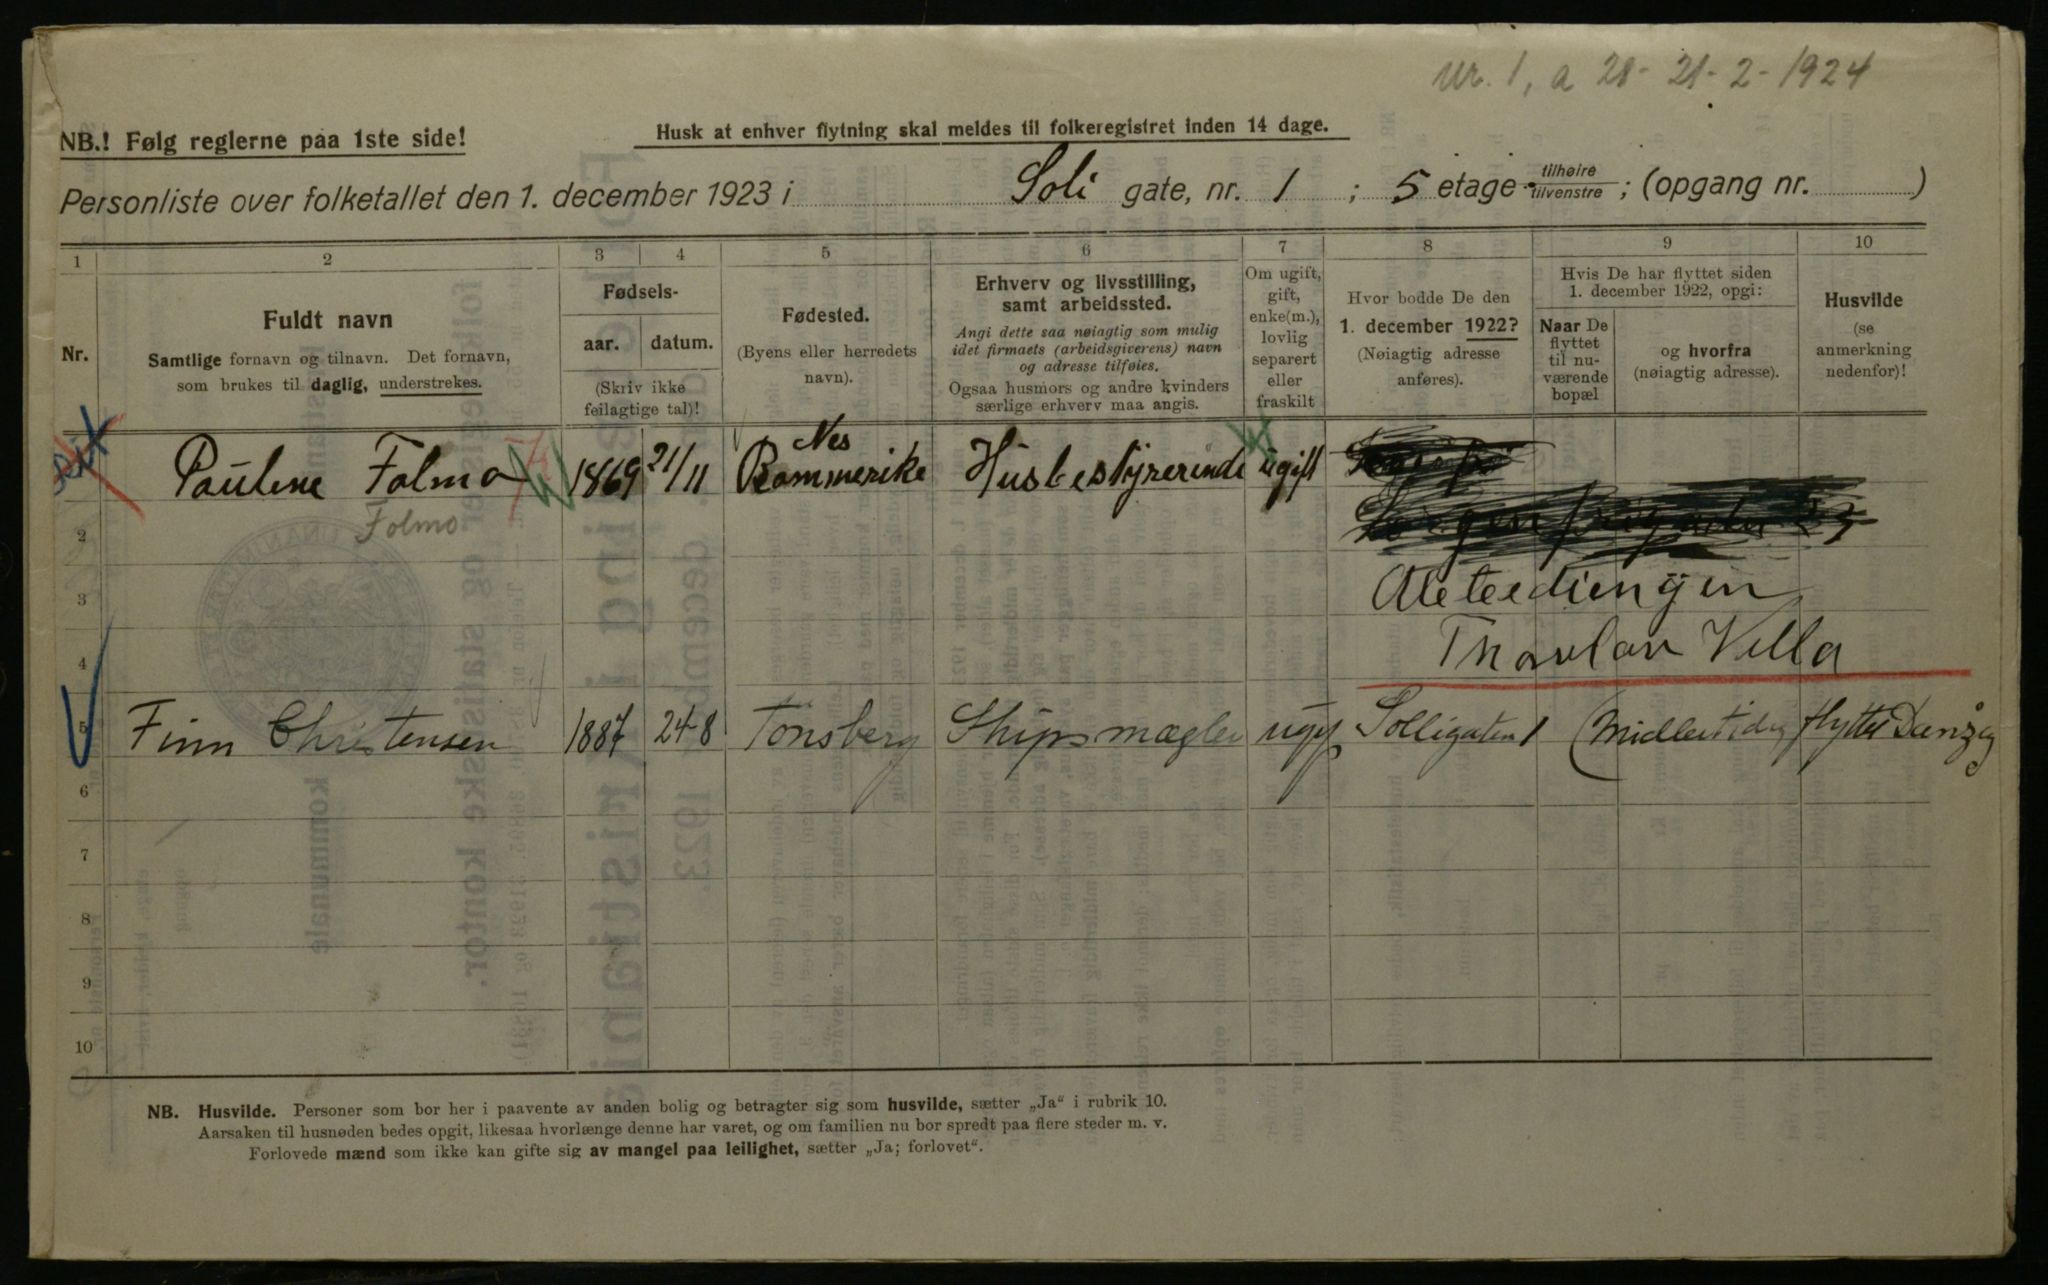 Nr. 1, a 28- 21-2-1924
NB.! Følg reglerne paa 1ste side!
Husk at enhver flytning skal meldes til folkeregistret inden 14 dage.
Personliste over folketallet den 1. december 1923 i Soli gate, nr. 1 ; 5 etage tilhøire tilvenstre ; (opgang nr. )
1 2 3 4 5 6 7 8 9 10
Nr.
Fuldt navn
Samtlige fornavn og tilnavn. Det fornavn,
som brukes til daglig, understrekes.
Fødsels-
aar. datum.
(Skriv ikke
feilagtige tal)!
Fødested.
(Byens eller herredets
navn).
Erhverv og livsstilling,
samt arbeidssted.
Angi dette saa nøiagtig som mulig
idet firmaets (arbeidsgiverens) navn
og adresse tilføies.
Ogsaa husmors og andre kvinders
særlige erhverv maa angis.
Om ugift,
gift,
enke(m.),
lovlig
separert
eller
fraskilt
Hvor bodde De den
1. december 1922?
(Nøiagtig adresse
anføres).
Hvis De har flyttet siden
1. december 1922, opgi:
Naar De
flyttet
til nu-
værende
bopæl
og hvorfra
(nøiagtig adresse).
Husvilde
(se
anmerkning
nedenfor)!
Paulene Folmo 1869 21/11 Nes Rommerike Husbestyrerinde ugift
2 Folmo
3
4 Villa
5 Finn Christensen 1887 24-8 Tönsberg Skipsmægler ugif Solligaten 1 (Midlertidig flyttet Danzig
6
7
8
9
10
NB. Husvilde. Personer som bor her i paavente av anden bolig og betragter sig som husvilde, sætter „Ja" i rubrik 10.
Aarsaken til husnøden bedes opgit, likesaa hvorlænge denne har varet, og om familien nu bor spredt paa flere steder m. v.
Forlovede mænd som ikke kan gifte sig av mangel paa leilighet, sætter „Ja; forlovet".